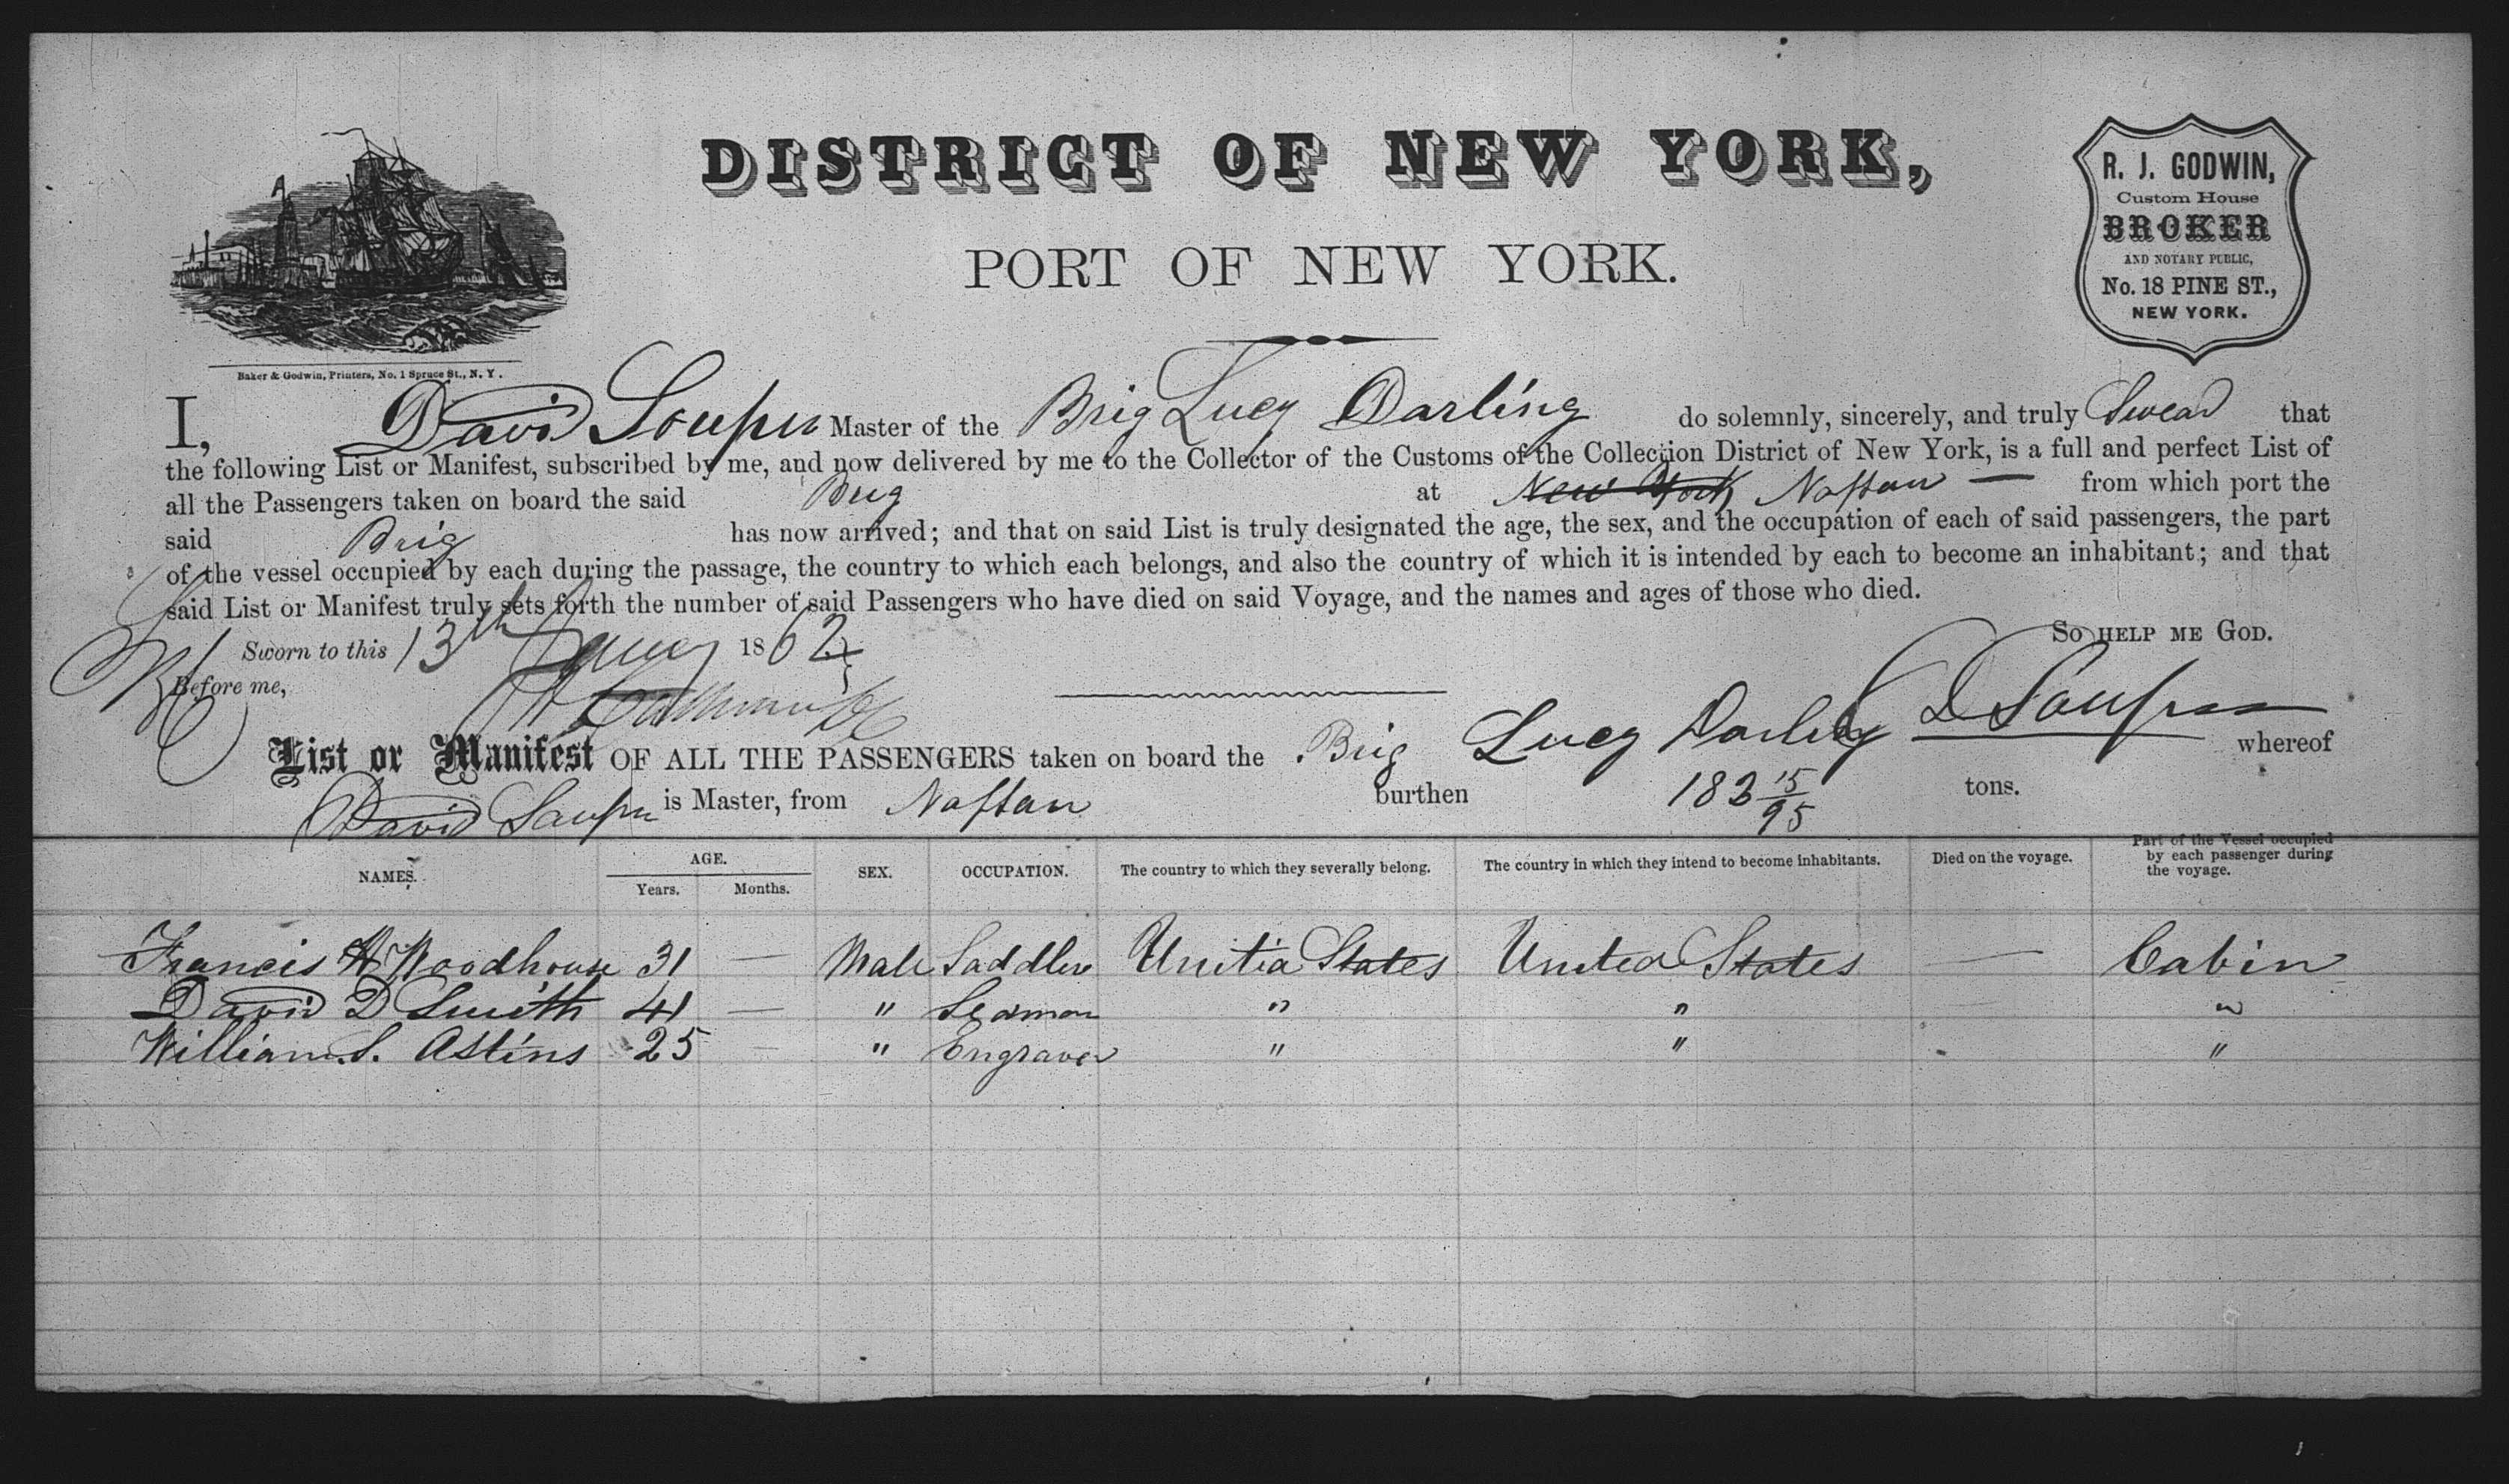 DISTRICT OF NEW YORK,
PORT OF NEW YORK.
R. J. GODWIN,
Custom House
BROKER
AND NOTARY PUBLIC,
No. 18 PINE ST.,
NEW YORK.
Baker & Godwin, Printers, No. 1 Spruce St., N. Y.
I, David Souper Master of the Brig Lucy Darling do solemnly, sincerely, and truly Swear that
the following List or Manifest, subscribed by me, and now delivered by me to the Collector of the Customs of the Collection District of New York, is a full and perfect List of
all the Passengers taken on board the said Brig at New York Nassau — from which port the
said Brig has now arrived; and that on said List is truly designated the age, the sex, and the occupation of each of said passengers, the part
of the vessel occupied by each during the passage, the country to which each belongs, and also the country of which it is intended by each to become an inhabitant; and that
said List or Manifest truly sets forth the number of said Passengers who have died on said Voyage, and the names and ages of those who died.
So HELP ME GOD.
Sworn to this 13th 1862
Before me,
D Souper
List or Manifest OF ALL THE PASSENGERS taken on board the Brig Lucy Darling whereof
David Souper is Master, from Nassau burthen 183 15/95 tons.
NAMES. AGE. SEX. OCCUPATION. The country to which they severally belong. The country in which they intend to become inhabitants. Died on the voyage. Part of the Vessel occupied by each passenger during the voyage.
Years. Months.
Francis H Woodhouse 31 — Male Saddler United States United States — Cabin
David D Smith 41 — " Seaman " " "
William S. Astins 25 — " Engraver " " "